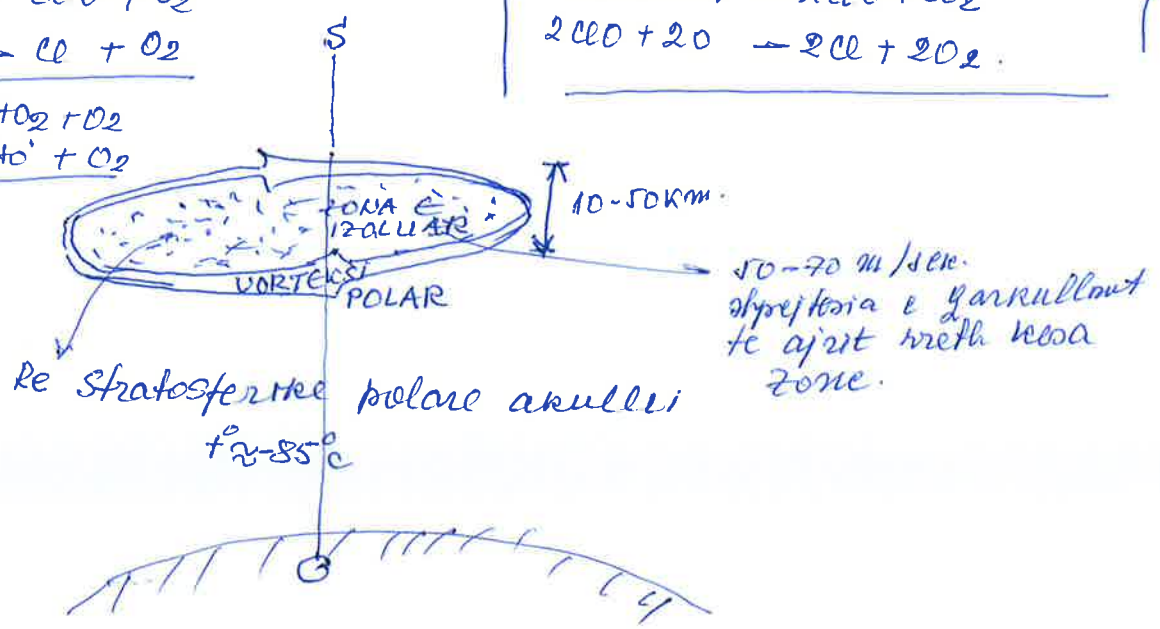 - Cl + O2
+O2 +O2
+ O2
2ClO + 2O → 2Cl + 2O2.
S
ZONA E
IZOLUAR
10-50 Km.
VORTEKSI
POLAR
50-70 m/sek.
shpejtesia e qarkullimit
te ajrit rreth kesa
zone.
Re stratosferike polare akulli
t° ≈ -85°C